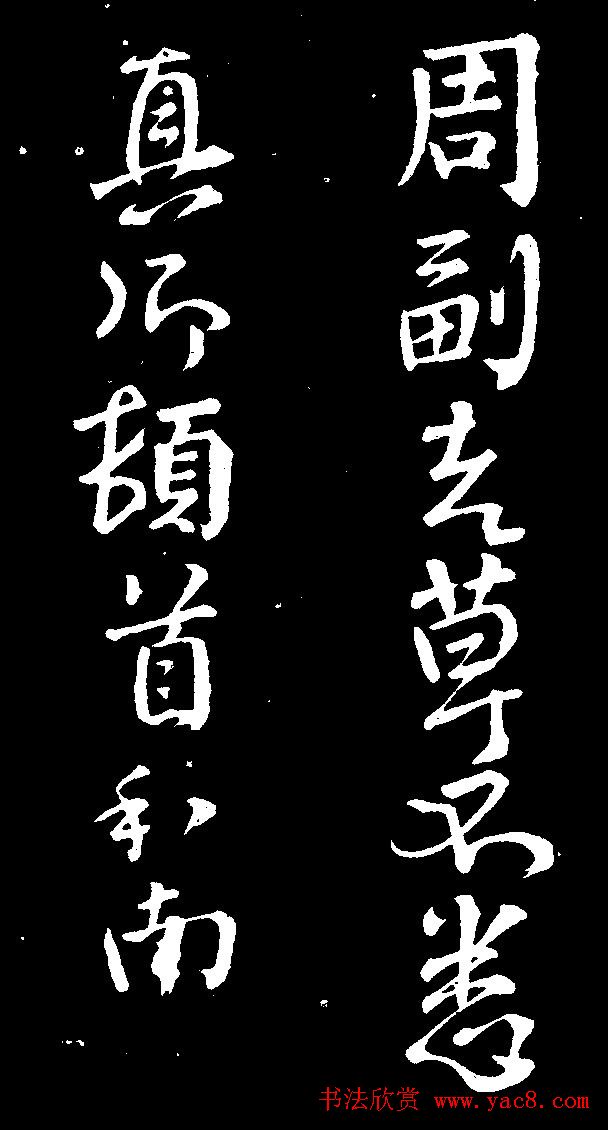 周副之草不悉
真卿頓首和南
书法欣赏 www.yac8.com